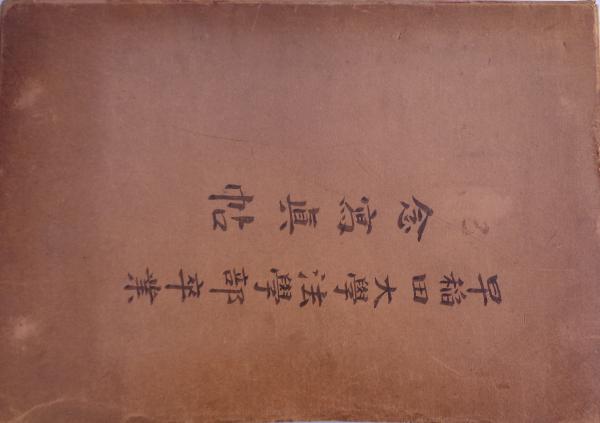 早稲田大學法學部卒業
念寫眞帖